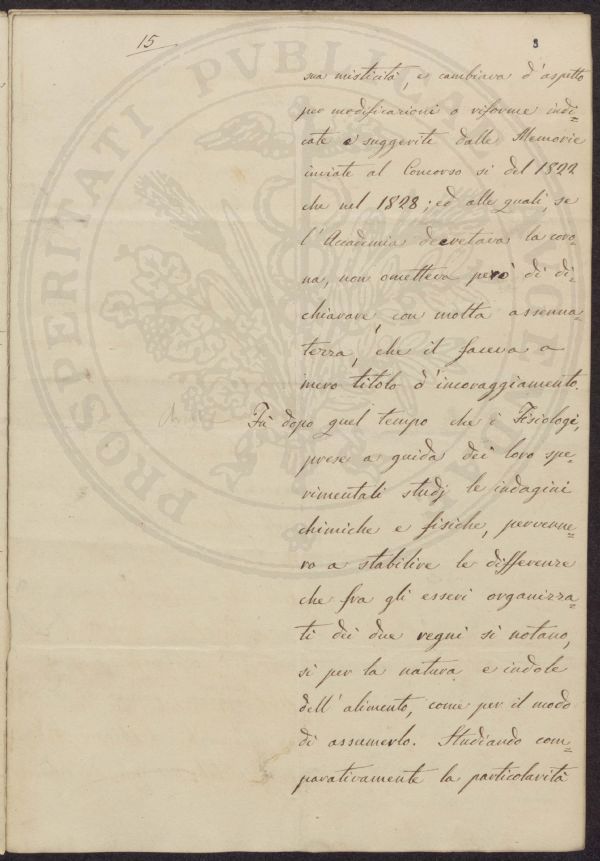 15
3
sua misticità, e cambiava d'aspetto
per modificazioni o riforme indi=
cate e suggerite dalle Memorie
inviate al Concorso sì del 1822
che nel 1828; ed alle quali, se
l'Accademia decretava la coro=
na, non ometteva però di di=
chiarare con molta assenna=
tezza, che il faceva a
mero titolo d'incoraggiamento.
Fù dopo quel tempo che i Fisiologi,
prese a guida dei loro spe=
rimentali studj le indagini
chimiche e fisiche, pervenne=
ro a stabilire le differenze
che fra gli esseri organizza=
ti dei due regni si notano,
sì per la natura e indole
dell'alimento, come per il modo
di assumerlo. Studiando com=
parativamente la particolarità
PROSPERITATI PVBLICAE